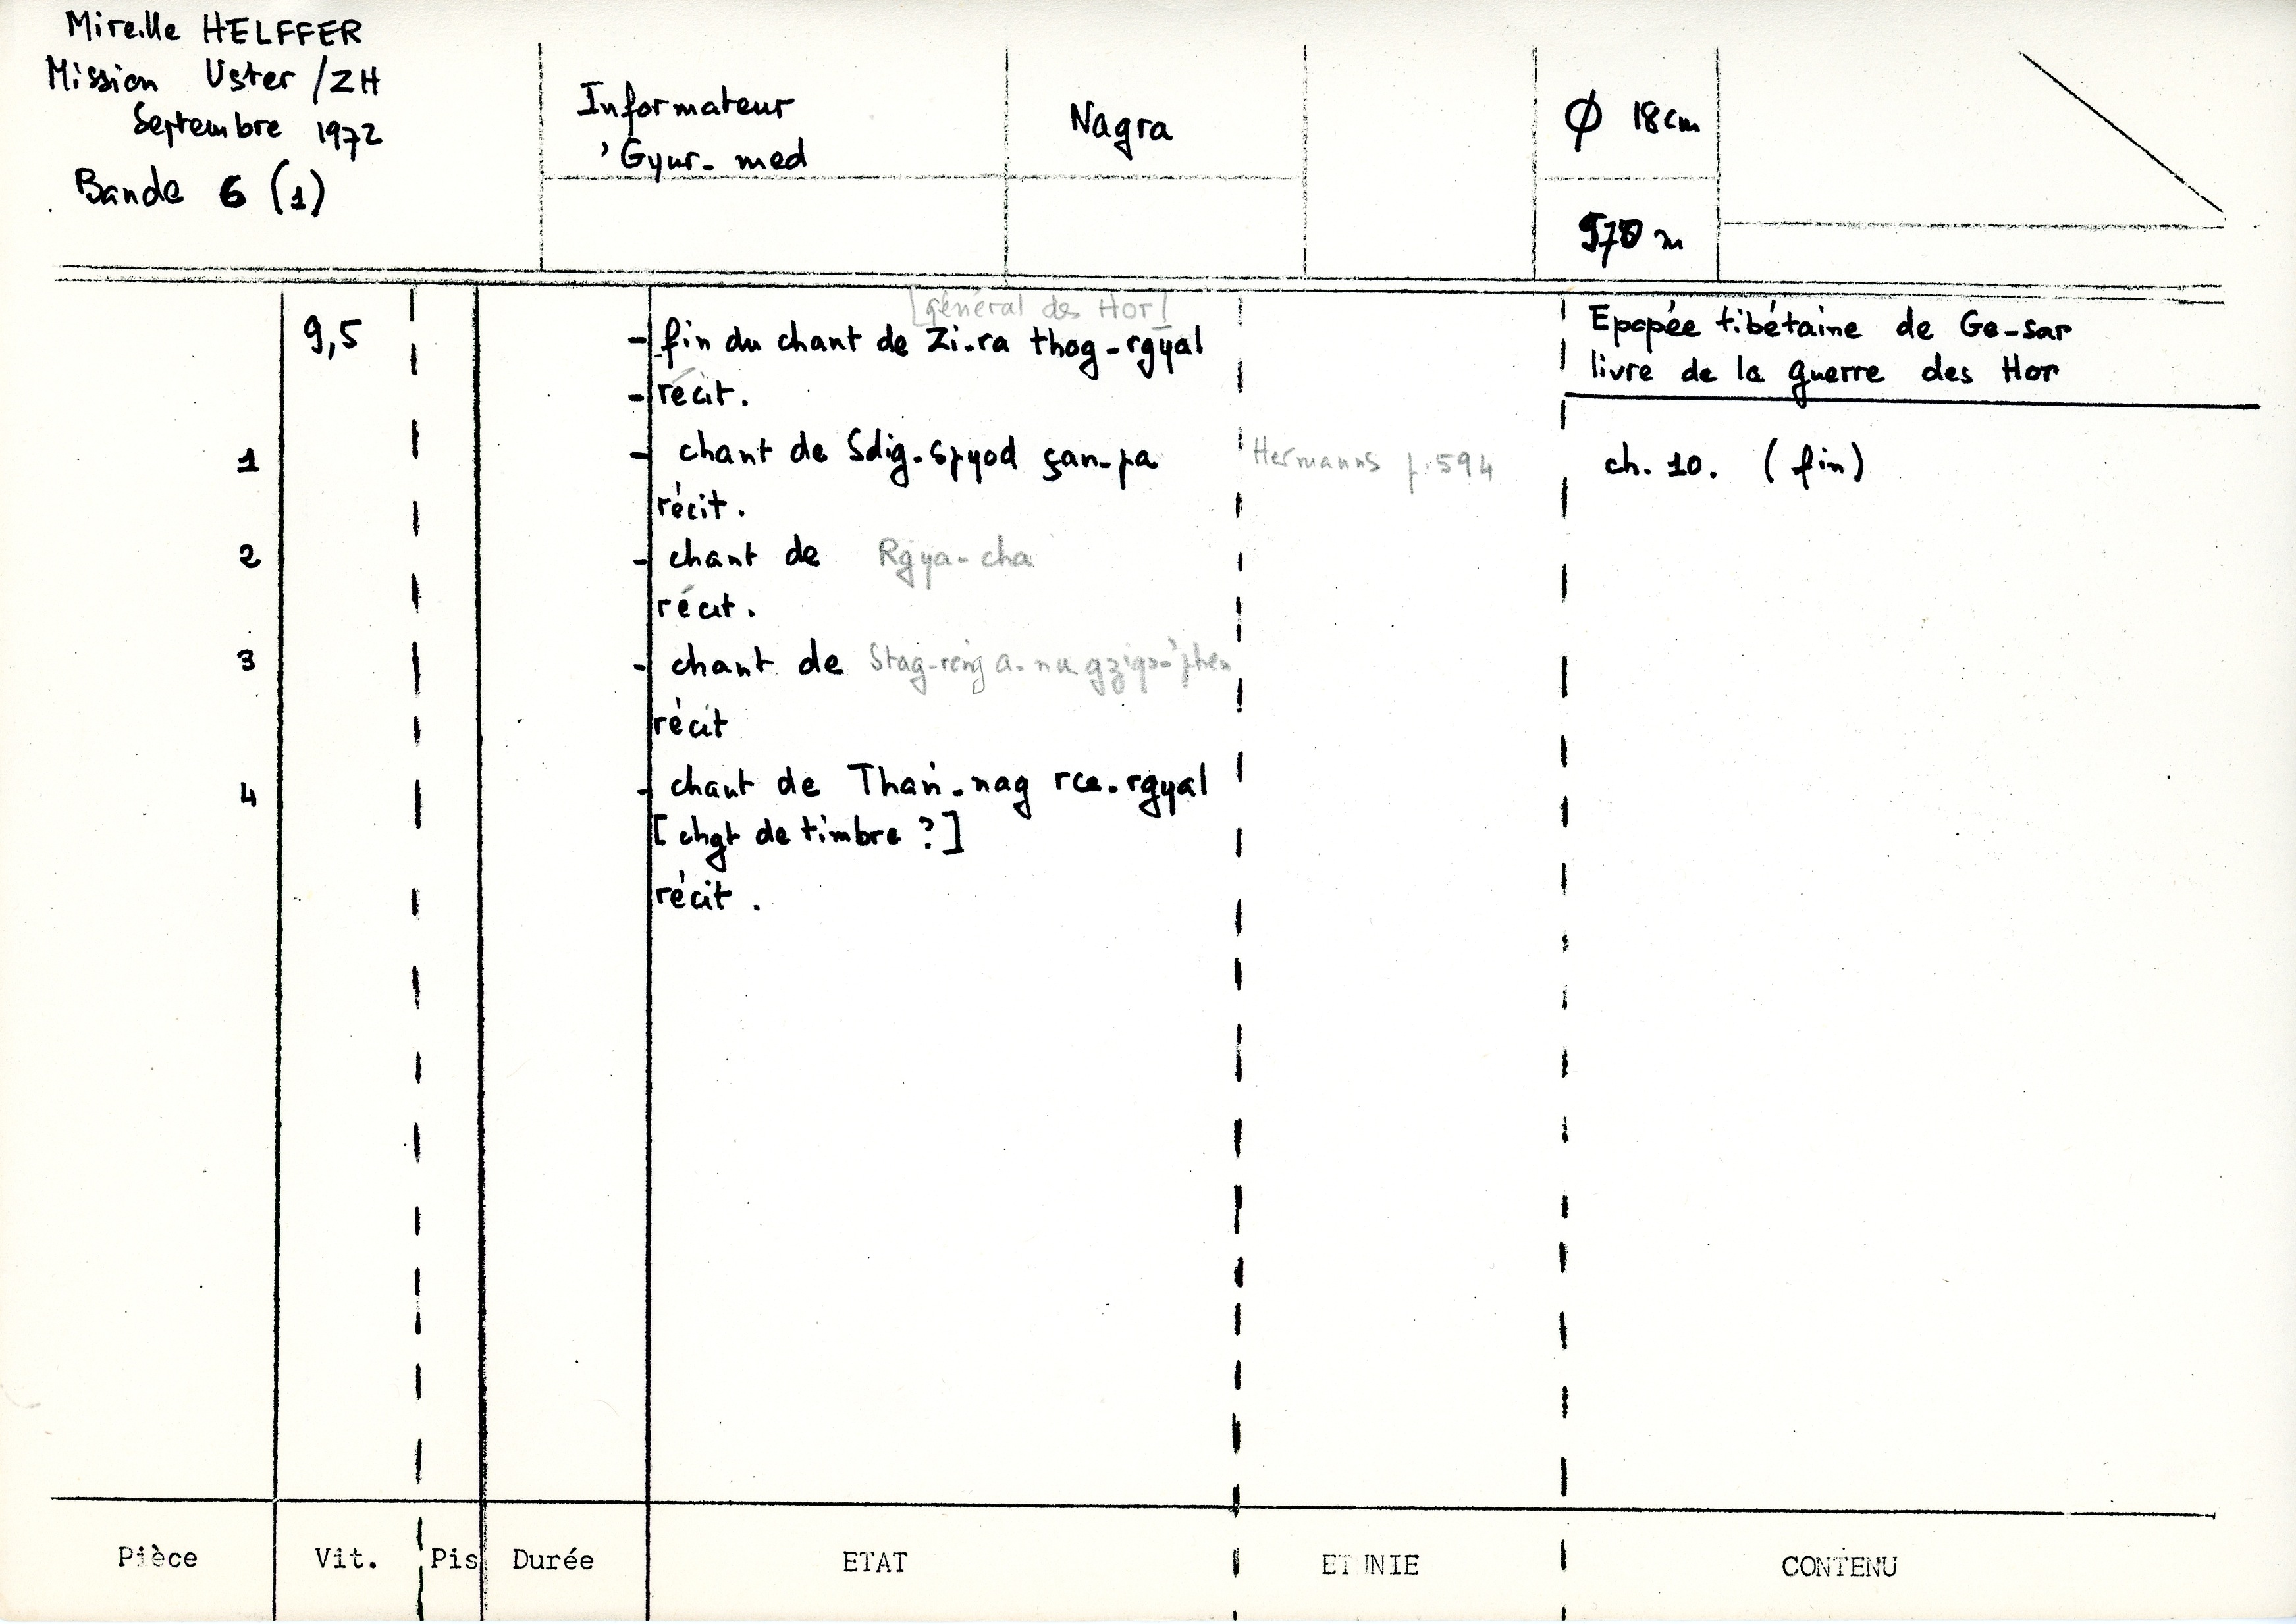 Mireille HELFFER
Mission Uster /ZH
Septembre 1972
Bande 6 (1)
Informateur
'Gyur-med
Nagra
Ø 18cm
m
[général des Hor]
9,5
- fin du chant de Zi-ra thog-rgyal
- récit.
Epopée tibétaine de Ge-sar
livre de la guerre des Hor
1 - chant de Sdig-spyod çan-pa Hermanns p.594 ch. 10. (fin)
récit.
2 - chant de Rgya-cha
récit.
3 - chant de
récit
4 - chant de Thaṅ-nag rce-rgyal
[chgt de timbre ?]
récit.
Pièce Vit. Pis Durée ETAT CONTENU